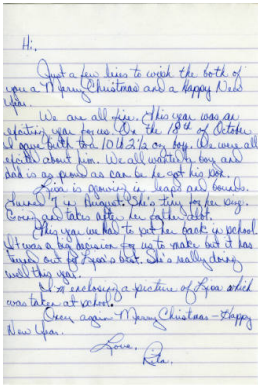 Hi,
Just a few lines to wish the both of
you a Merry Christmas and a Happy New
Year.
We are all fine. This year was an
exciting year for us. On the 18th of October
I gave birth to a 10 lb 3 1/2 oz boy. We were all
excited about him. We all wanted a boy and
dad is as proud as can be he got his son.
Lisa is growing in leaps and bounds.
turned 7 in August. She's tiny for her size.
and takes after her father alot.
This year we had to put her back in school.
It was a big decision for us to make but it has
turned out for Lisa's best. She's really doing
well this year.
I'm enclosing a picture of Lisa which
was taken at school.
Once again Merry Christmas - Happy
New Year.
Love,
Rita.